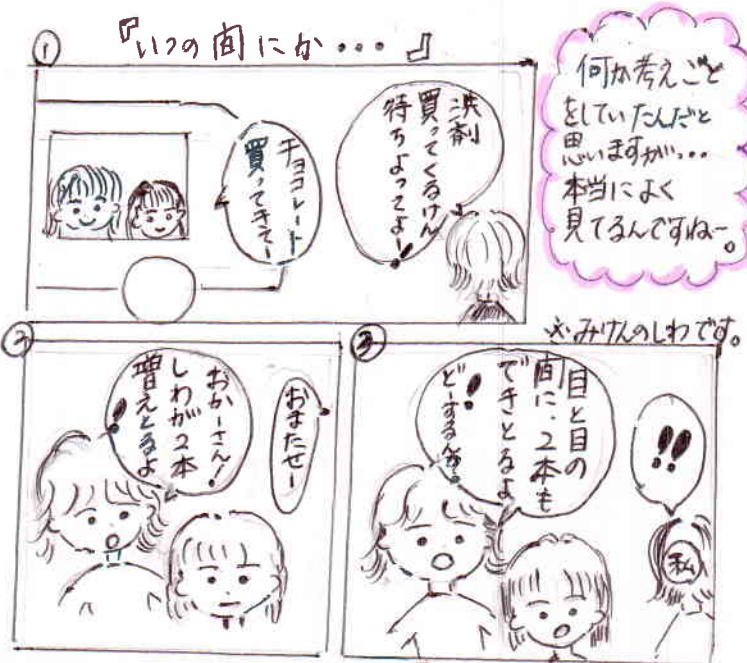 『いつの間にか・・・』
①
洗剤
買ってくるけん
待ちよってよー!
チョコレート
買ってきてー
何か考えごと
をしていたんだと
思いますが...
本当によく
見てるんですねー。
②
おまたせー
おかーさん!
しわが2本
増えとるよ!
③
※みけんのしわです。
!!
目と目の
間に、2本も
できとるよ!
どーするん?
私